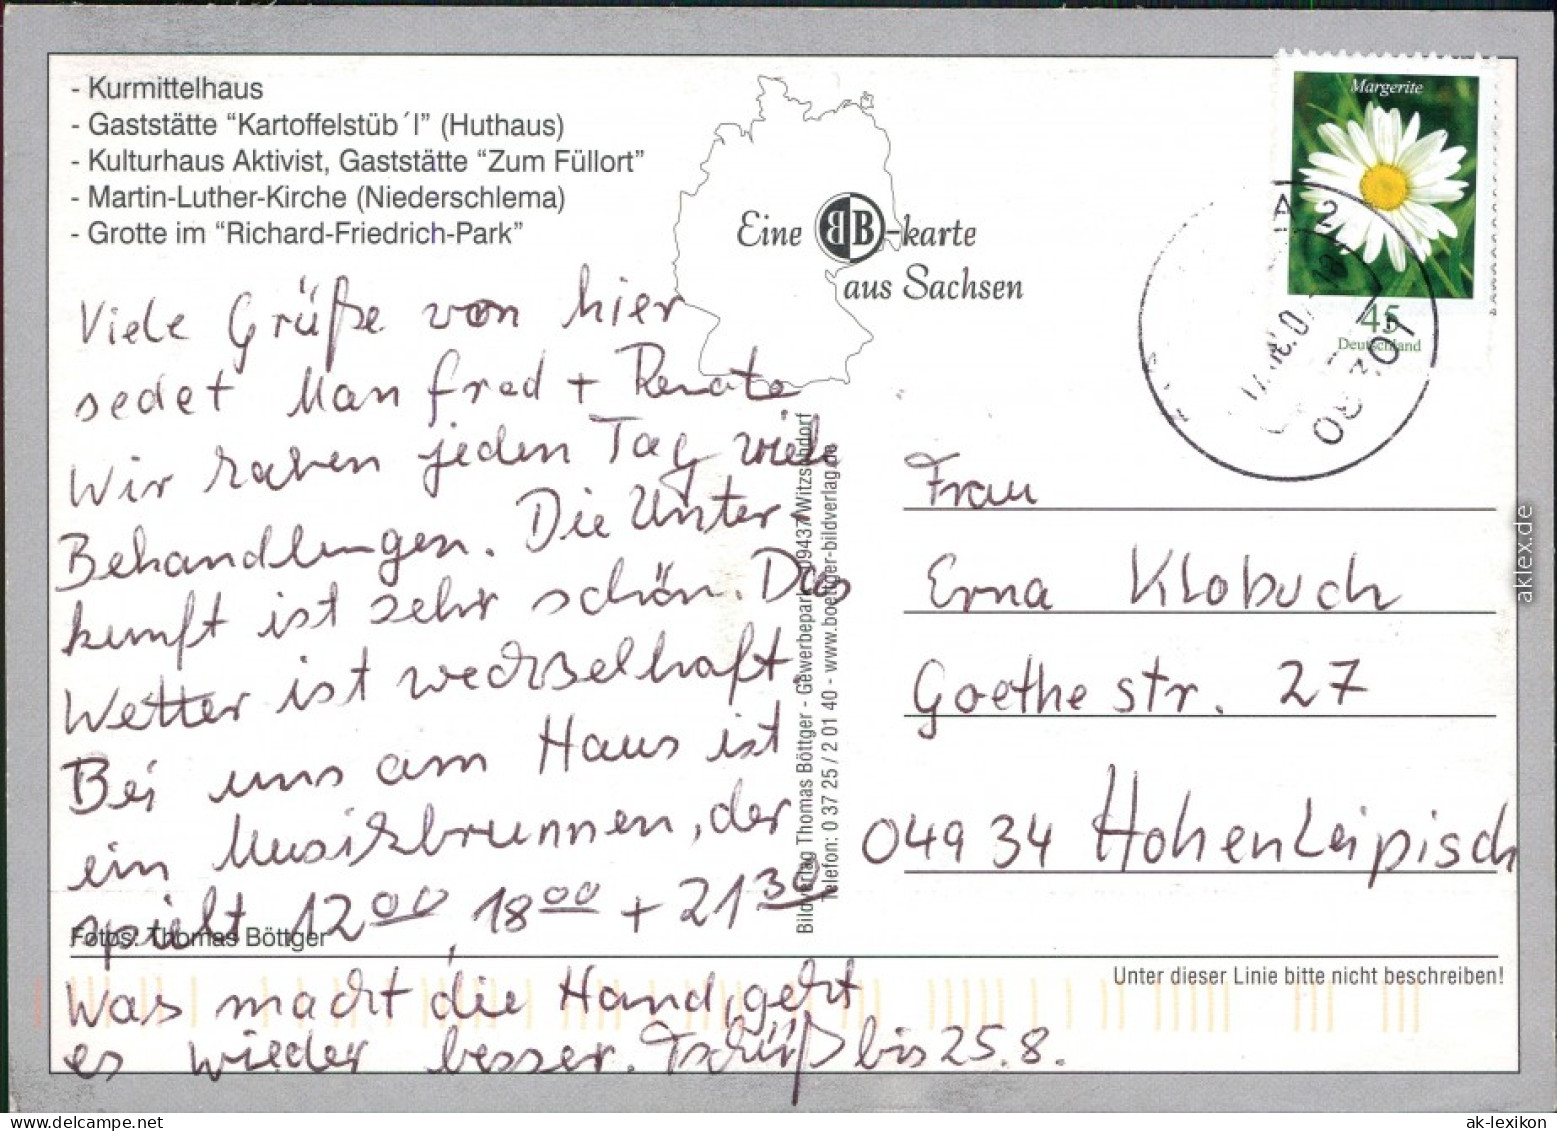 - Kurmittelhaus
- Gaststätte “Kartoffelstüb´l” (Huthaus)
- Kulturhaus Aktivist, Gaststätte “Zum Füllort”
- Martin-Luther-Kirche (Niederschlema)
- Grotte im “Richard-Friedrich-Park”
Eine BB-karte
aus Sachsen
Margerite
45
Deutschland
Viele Grüße von hier
sedet Manfred + Renate
Wir haben jeden Tag viele
Behandlungen. Die Unter-
kunft ist sehr schön. Das
Wetter ist wechselhaft.
Bei uns am Haus ist
ein Musikbrunnen, der
spielt 12 00, 18 00 + 21 30
Was macht die Hand, geht
es wieder besser. Tschüß bis 25.8.
Fotos: Thomas Böttger
Bildverlag Thomas Böttger - Gewerbepark - 09437 Witzschdorf
Telefon: 0 37 25 / 2 01 40 - www.boettger-bildverlag.de
Frau
Erna Klobuch
Goethestr. 27
04934 Hohenleipisch
Unter dieser Linie bitte nicht beschreiben!
aklex.de
www.delcampe.net
ak-lexikon